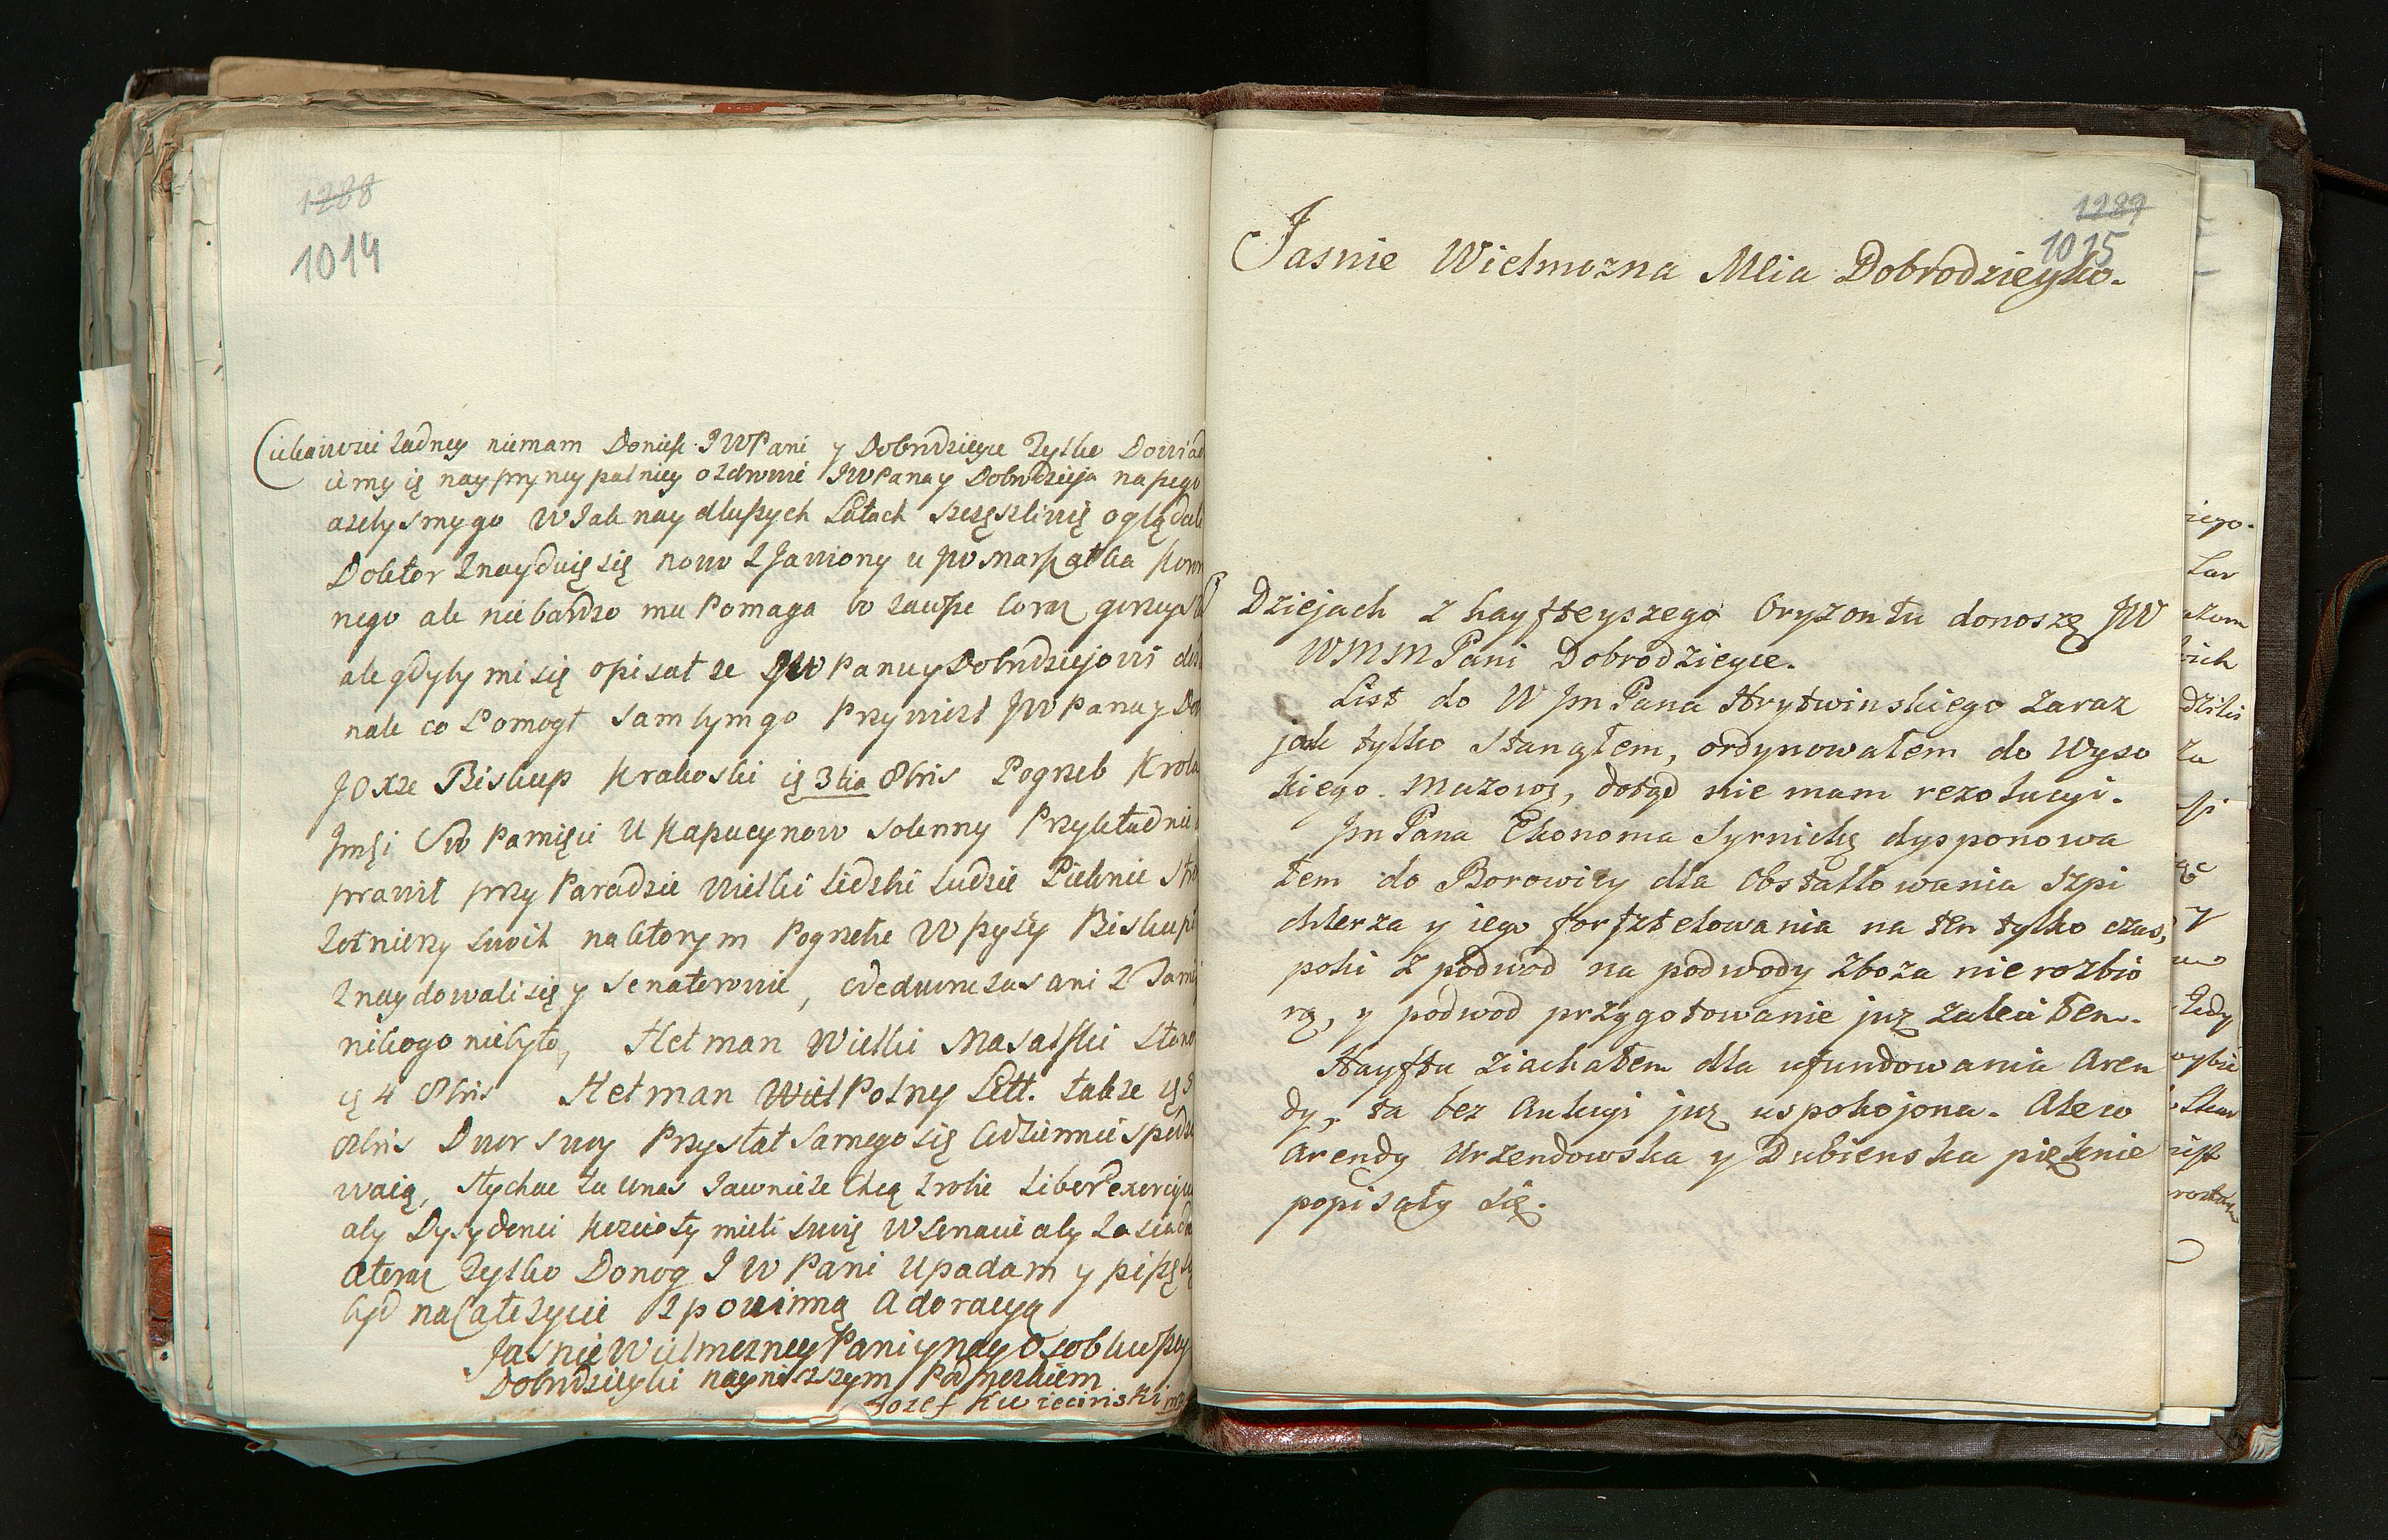 1288
1014
Ciekawości żadney niemam Donieść JWPani y Dobrodzieyce Tylko Dowiad
my się nay pryncypalniey o zdrowie JWPana y Dobrodzieja naszego
azebysmy go W Jak nay dluszych Latach szczęszliwię oglądali
Doktor Znayduię się nowo Zjawiony u JW Marszałka
nego ale nie bardzo mu Pomaga bo zawsze coraz gorzey
ale gdyby mi się opisał ze JW Panu y Dobrodziejowi
nale co Pomogł sam bym go Przywiozł JW Panu y Do
JOXże Biskup Krakoski 3tia 8bris Pogrzeb Krola
Jmśi Św Pamięci U Kapucynow solenny Przykładnie
prawił przy Paradzie wielki Ludzie Pieknie
Zołnierzy na ktorym Pogrzebie Wszyscy Biskupi
Znaydowali się y Senatorowie, ani Z
nikogo niebyło, Hetman Wielki Masalski
4 8bris Hetman Wiel Polny Litt. takze
8bris Dwor swoy Przysłał samego się codziennie spodzi
waią, słychac tu unas Jawnie ze chcą zrobic Liber exerciti
aby Dysydenci koscioły mieli swoię W senacie aby zasiada
ateraz Tylko Donog JW Pani Upadam y piszę
byd na Całe zycie z powinną Adoracyą
Jasnie Wielmozney Pani y nay Osobliwszey
Dobrodzieyki nayniszszym Podnoszkiem
Jozef Kwiecinski mp
1289
1015
Jasnie Wielmozna Mcia Dobrodzieyko.
Dziejach z hayszteyszego Oryzontu donoszę JW
WMM Pani Dobrodzieyce.
List do W Jm Pana Hrytwinskiego zaraz
jak tylko stanąłem, ordynowałem do Wyso
kiego Muzową, dotąd nie mam rezolucyi.
Jm Pana Ekonoma Syrnickę dysponowa
łem do Borowicy dla Obstallowania Szpi
chlerza y iego forsztelowania na ten tylko czas,
poki z podwod na podwody zboza nie rozbio
rą, y podwod przygotowanie juz zaleciłem.
Haysztu ziachałem dla ufundowania Aren
dy, ta bez Aukcyi juz uspokojona. Ale w
Arendy Urzendowska y Dubienska pięknie
popisały się.